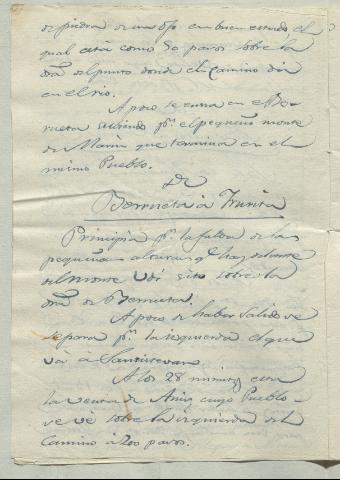 de piedra de un ojo en buen estado el
qual está como 50 pasos sobre la
dra del punto donde el camino dá
en el rio.
A poco se entra en el Be-
rrueta subiendo pr el pequeño monte
de Marin que termina en el
mismo Pueblo.
De
Berrueta à Irurita
Principia pr la falda de las
pequeñas alturas qe hay delante
del monte sito sobre la
dra de Berrueta.
A poco de haber salido se
separa pr la izquierda el que
vá à Santistevan
A los 28 minutos esta
la venta de Aniz cuyo Pueblo
se vé sobre la izquierda del
Camino à 200 pasos.